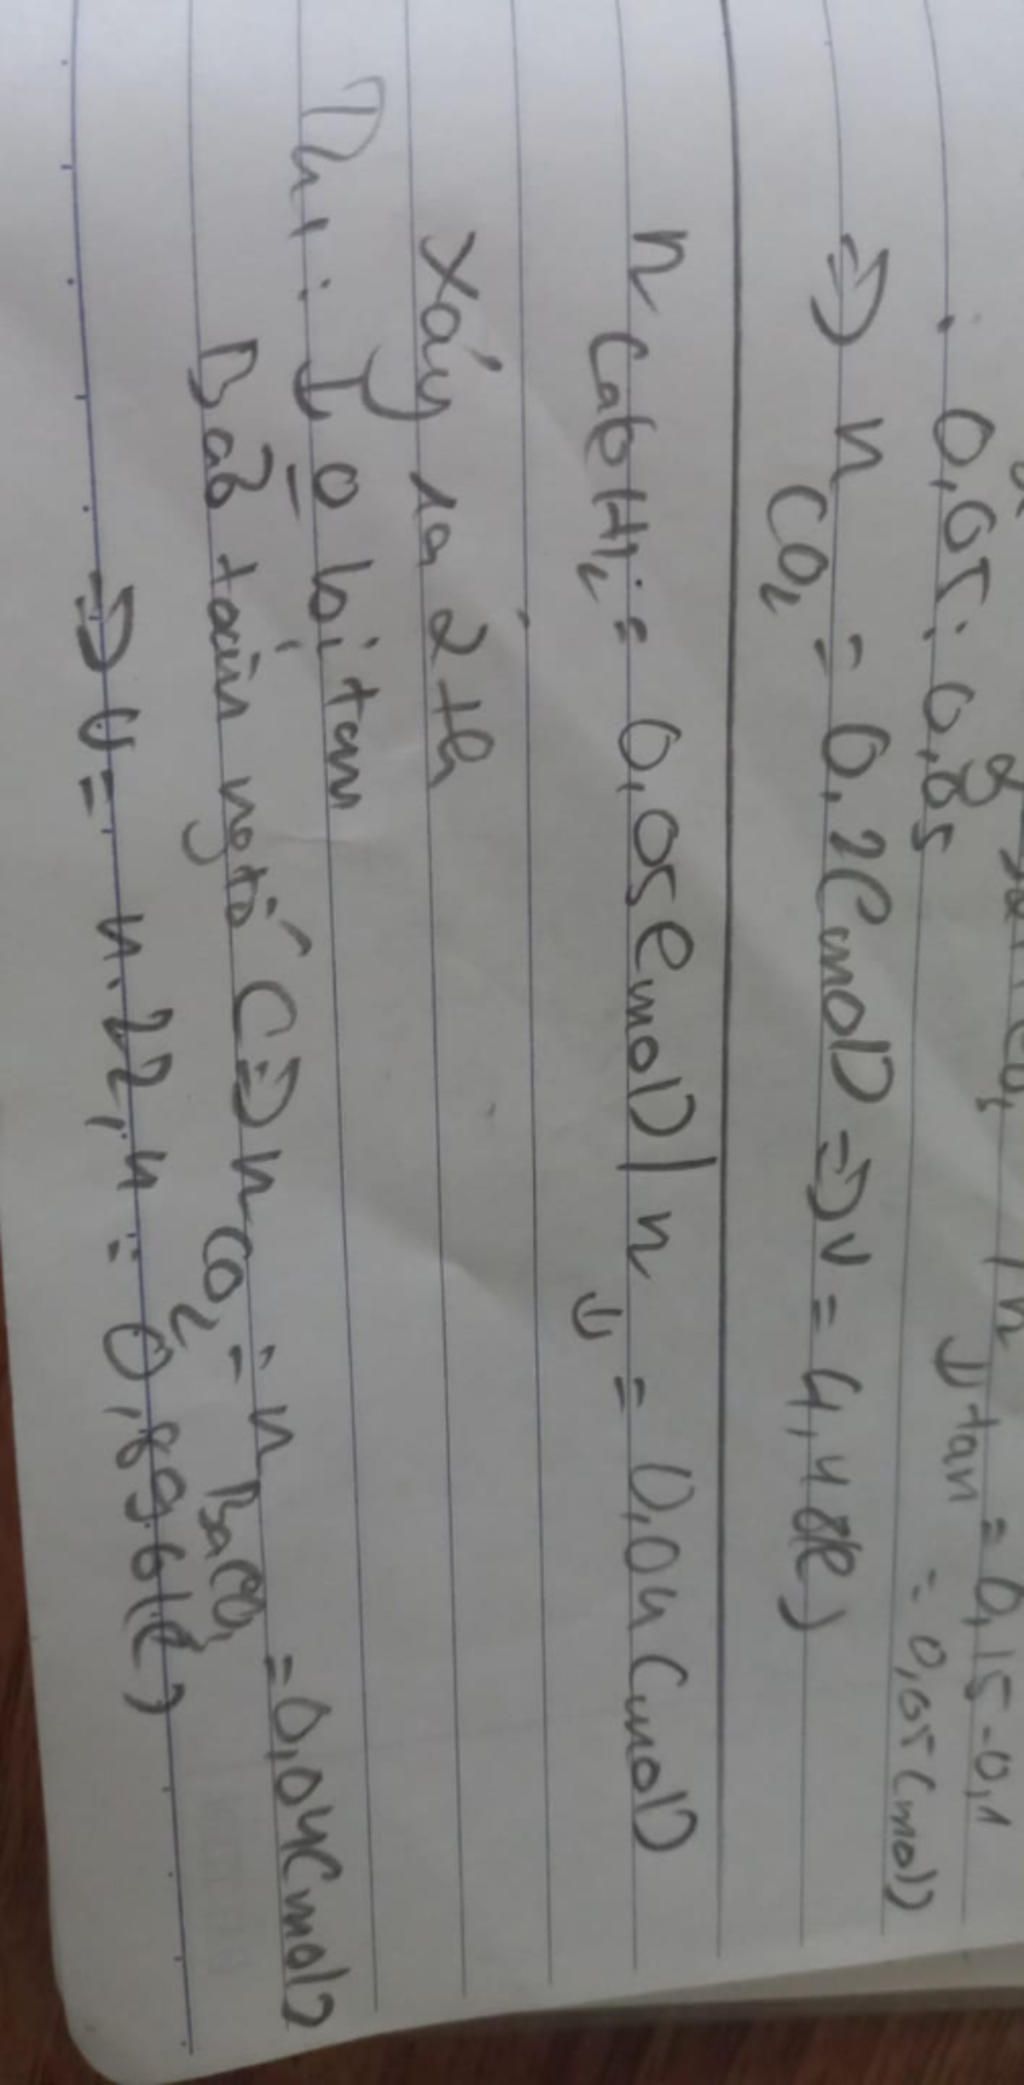 = 0,15 - 0,1
↓ tan = 0,05 (mol)
0,05 : 0,05
⇒ n CO₂ = 0,2 (mol) ⇒ V = 4,48(l)
n Ca(OH)₂ = 0,05 (mol) | n ↓ = 0,04 (mol)
Xảy ra 2 th
Th1: ↓ o bị tan
Bảo toàn ngtố C ⇒ n CO₂ = n BaCO₃ = 0,04 (mol)
⇒ V = n.22,4 = 0,896(l)